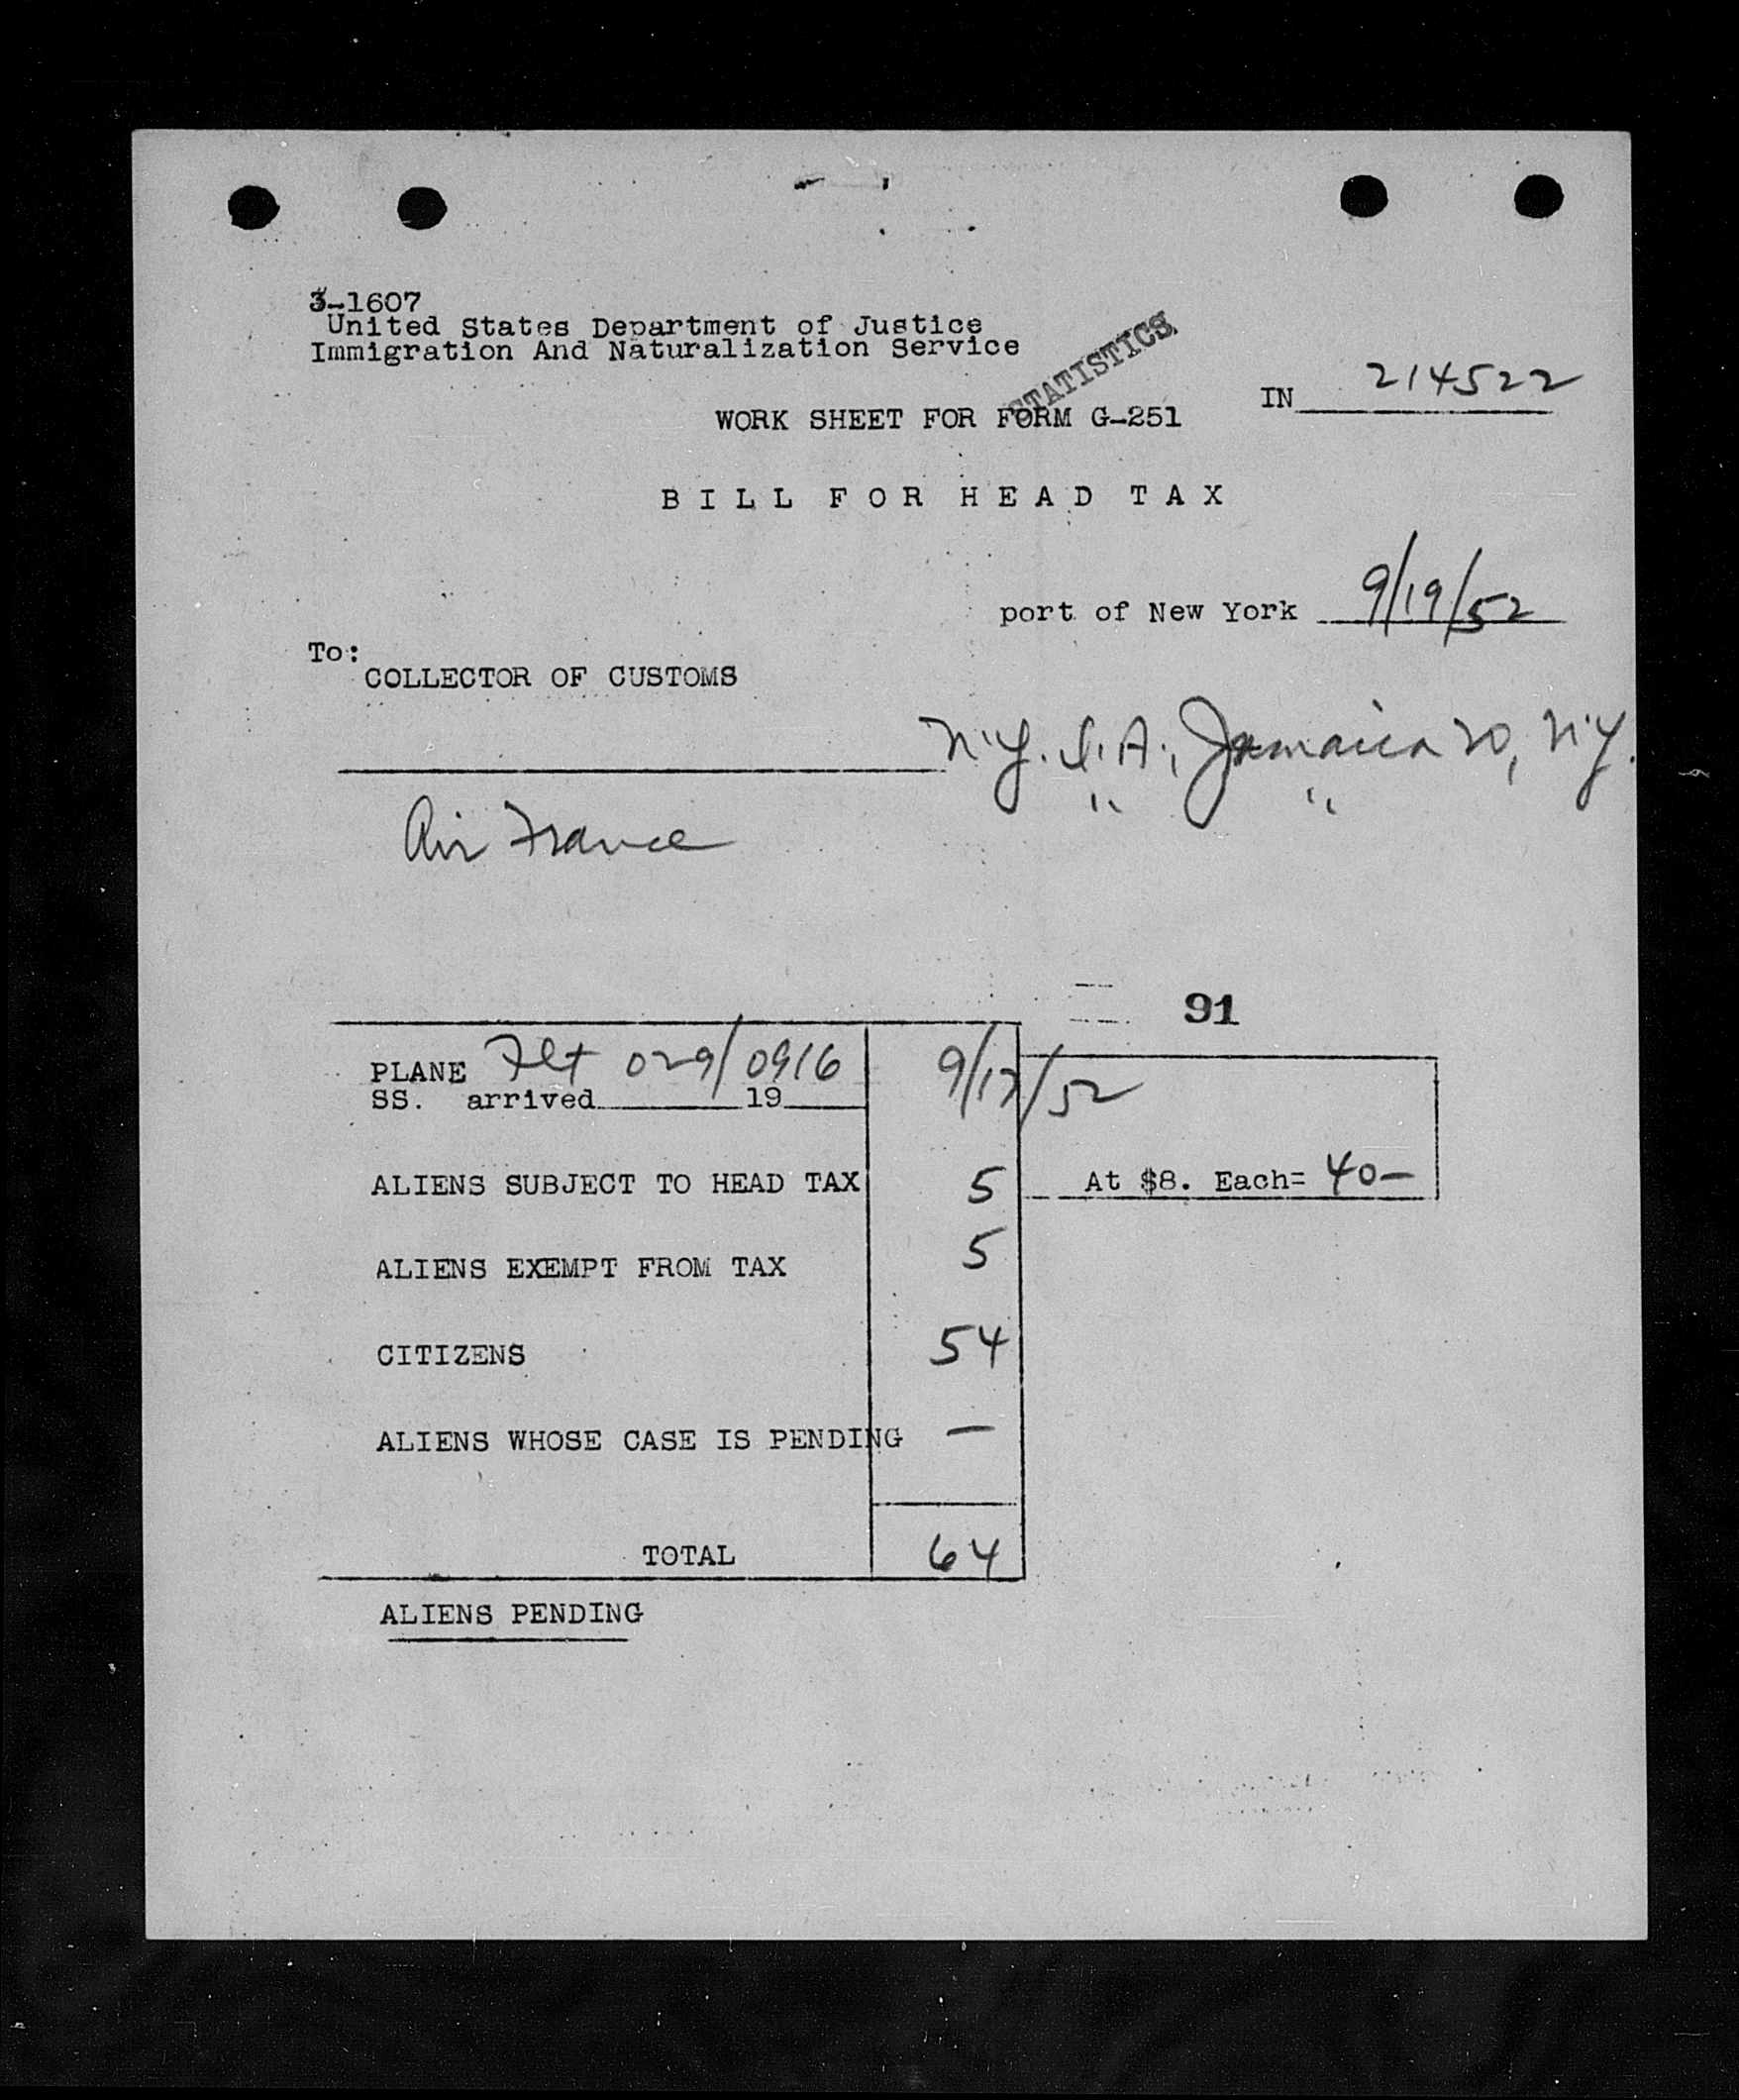 3-1607
United States Department of Justice
Immigration And Naturalization Service
STATISTICS
IN 214522
WORK SHEET FOR FORM G-251
BILL FOR HEAD TAX
port of New York 9/19/52
To:
COLLECTOR OF CUSTOMS
N.Y. I. A., Jamaica 20, N.Y.
Air France
91
PLANE Flt 029/0916 9/17/52
SS. arrived 19
ALIENS SUBJECT TO HEAD TAX 5 At $8. Each= 40-
ALIENS EXEMPT FROM TAX 5
CITIZENS 54
ALIENS WHOSE CASE IS PENDING —
TOTAL 64
ALIENS PENDING